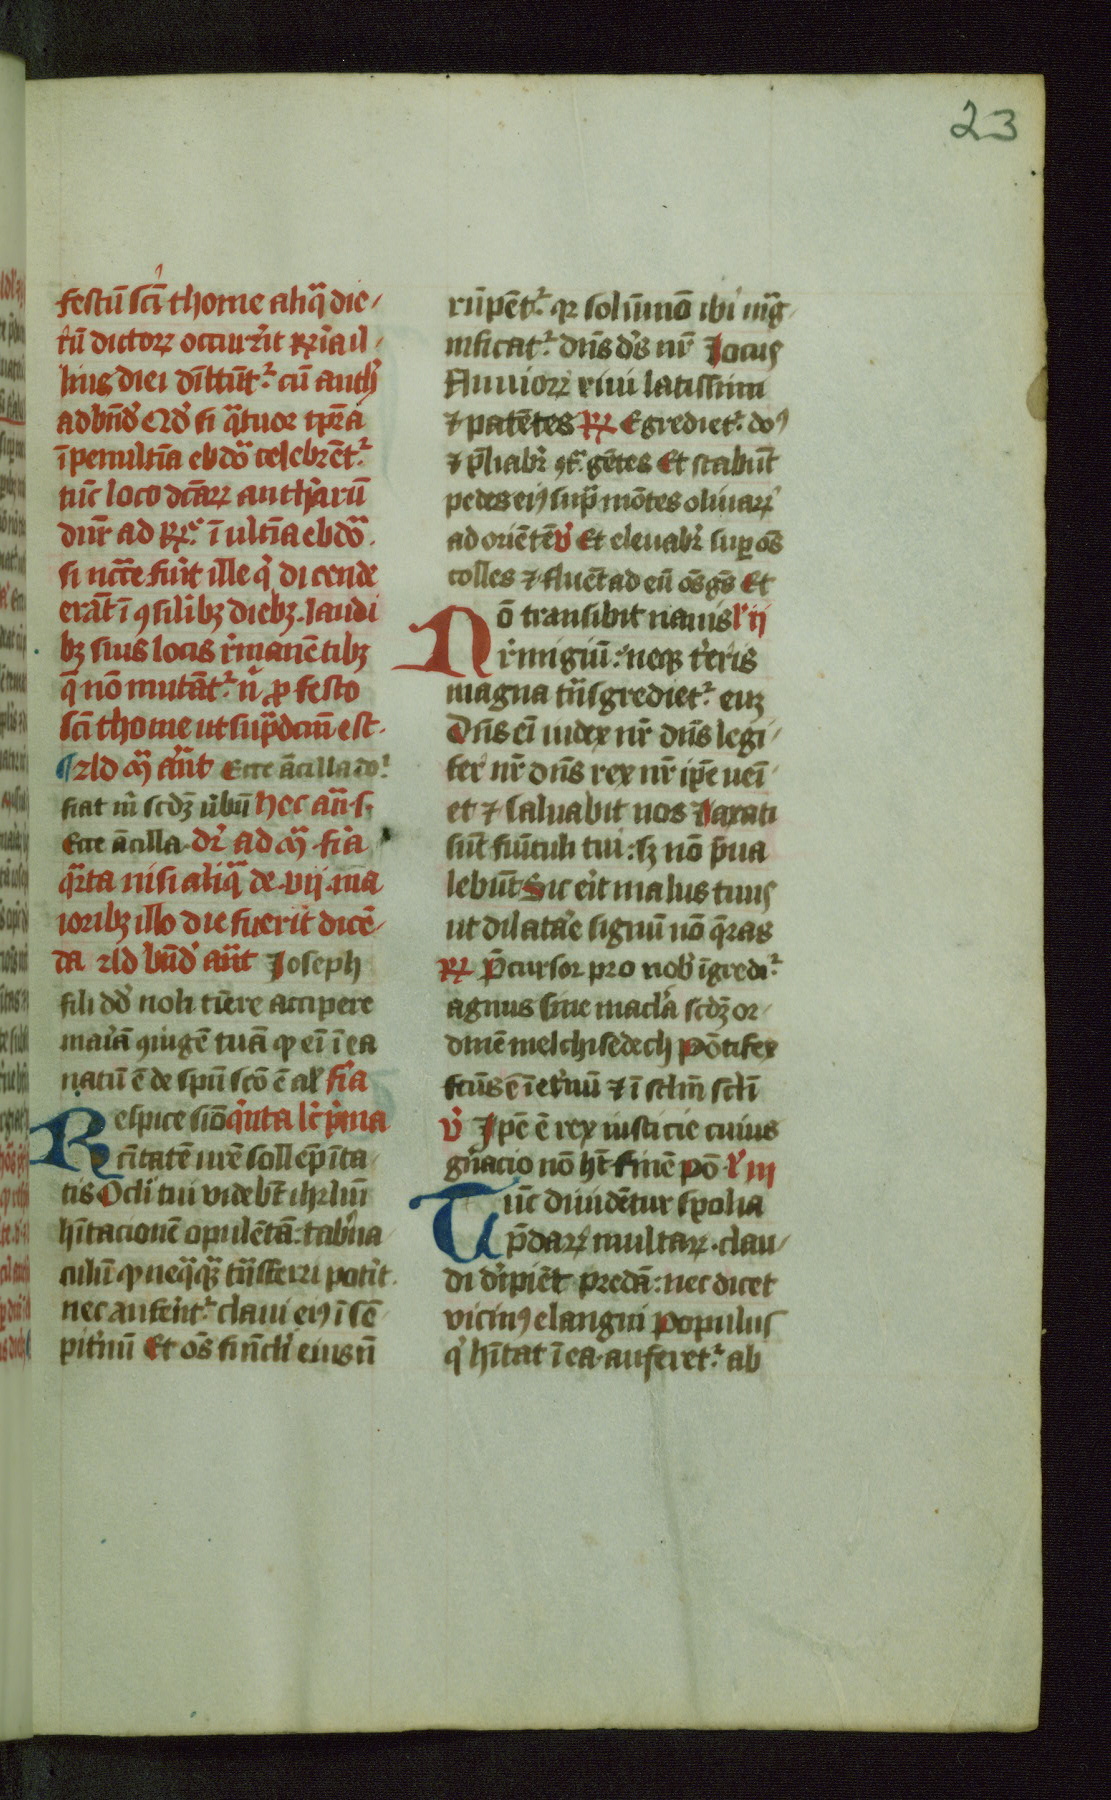 23
festū scī thome aliq̄ die
tū dictoꝝ occurrit
hiis diei cū anth
si q̄tuor
ī penultīa ebdō celebrēt᷑
tūc loco dc̄aꝝ anthārū
ad ī ultīa ebdō
si ille q̄ dicende
erāt ī ꝯsilibꝫ diebꝫ laudi
bꝫ suis locis rͥmanētibꝫ
q̄ nō mutāt᷑ n̄ ꝑ festo
scī thome ut sup̄dcm̄ est
Ecce ācilla do
fiat m̄ scdꝫ v̄bū hec añ s
Ecce ācilla dr̄ ad fīa
q̄rta nisi aliq̄ de vij ma
ioribꝫ illo die fuerit dicē
da Joseph
fili dd̄ noli tīere accipere
mar̄iā ꝯiugē tuā ꝙ eī ī ea
natū ē de spū scō ē al̄l fīa
Respice siō q̄nta lc̄ p̄ma
cīitatē nr̄e sollēp̄ita
tis Ocl̄i tui videbt̄ ihrlm̄
hītacionē opulētā: tab̄na
culū ꝙ neq̄q̄ꝫ tn̄sferri potīt
nec auferēt᷑ claui eiꝰ ī sē
pit̄nū Et oēs fūicl̄i eius nō
rūpēt᷑ qꝛ solūmō ibi mag
nificat᷑ dn̄s dꝰs nr̄ Locus
fluuioꝝ riui latissimi
⁊ patētes ℟ Egrediet᷑ doꝰ
⁊ p̄liabr̄ ꝯt̄ gētes Et stabūt
pedes eiꝰ sup̄ mōtes oliuaꝝ
ad oriētē v̄ Et eleuabr̄ suꝑ oēs
colles ⁊ fluēt ad eū oēs gēs Et
Nō transibit nauis lͨ ij
rͥmigiū: neqꝫ tͥeris
magna tn̄sgrediet᷑ euꝫ
Dn̄s eī iudex nr̄ dn̄s legi
fer nr̄ dn̄s rex nr̄ ip̄e ueī
et ⁊ saluabit nos Laxati
sūt fūiculi tui: sꝫ nō p̄ua
lebūt Sic eīt malus tuus
ut dilatar̄e signū nō q̄ras
℟ P̄cursor pro nob̄ īgredi᷑
agnus sine macl̄a scdꝫ or
dinē melchisedech Pōtifex
fc̄us ē ī et̄nū ⁊ ī scl̄m scl̄i
v̄ Ip̄e ē rex iusticie cuius
gn̄acio nō ht̄ finē Pō lͨ iij
Tūc diuidētur spolia
p̄daꝝ multaꝝ clau
di dir̄piēt predā: nec dicet
vicinꝰ elangui Populus
q̄ hītat ī ea auferet᷑ ab